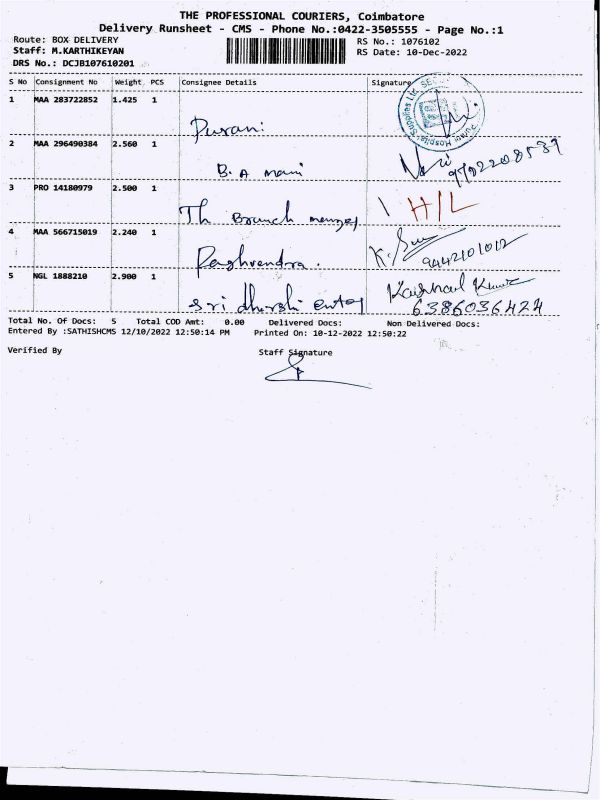 THE PROFESSIONAL COURIERS, Coimbatore
Delivery Runsheet - CMS - Phone No.:0422-3505555 - Page No.:1
Route: BOX DELIVERY RS No.: 1076102
Staff: M.KARTHIKEYAN RS Date: 10-Dec-2022
DRS No.: DCJB107610201
S No Consignment No Weight PCS Consignee Details Signature
1 MAA 283722852 1.425 1 Purani
2 MAA 296490384 2.560 1 B. A mani
3 PRO 14180979 2.500 1 Th Branch H/L
4 MAA 566715019 2.240 1 Raghvendra. 9442101012
5 NGL 1888210 2.900 1 sri Kaushal Kumar
6386036424
Total No. Of Docs: 5 Total COD Amt: 0.00 Delivered Docs: Non Delivered Docs:
Entered By :SATHISHCMS 12/10/2022 12:50:14 PM Printed On: 10-12-2022 12:50:22
Verified By Staff Signature